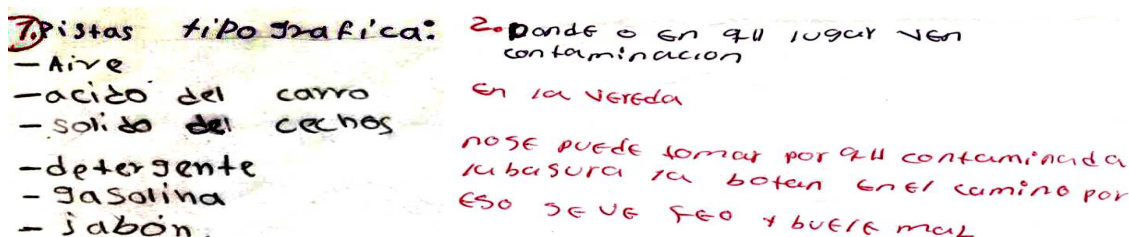 1. Pistas tipografica:
- Aire
- acido del carro
- solido del cechos
- detergente
- gasolina
- jabón.
2. Donde o en qu lugar ven
contaminacion
En la vereda
nose puede tomar por qu contaminada
la basura la botan en el camino por
eso se ve feo y buele mal